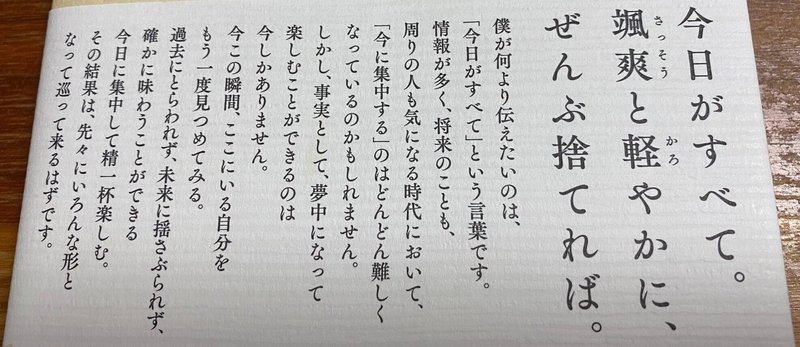 今日がすべて。
颯爽と軽やかに、
さっそう
かろ
ぜんぶ捨てれば。
僕が何より伝えたいのは、
「今日がすべて」という言葉です。
情報が多く、将来のことも、
周りの人も気になる時代において、
「今に集中する」のはどんどん難しく
なっているのかもしれません。
しかし、事実として、夢中になって
楽しむことができるのは
今しかありません。
今この瞬間、ここにいる自分を
もう一度見つめてみる。
過去にとらわれず、未来に揺さぶられず、
確かに味わうことができる
今日に集中して精一杯楽しむ。
その結果は、先々にいろんな形と
なって巡って来るはずです。